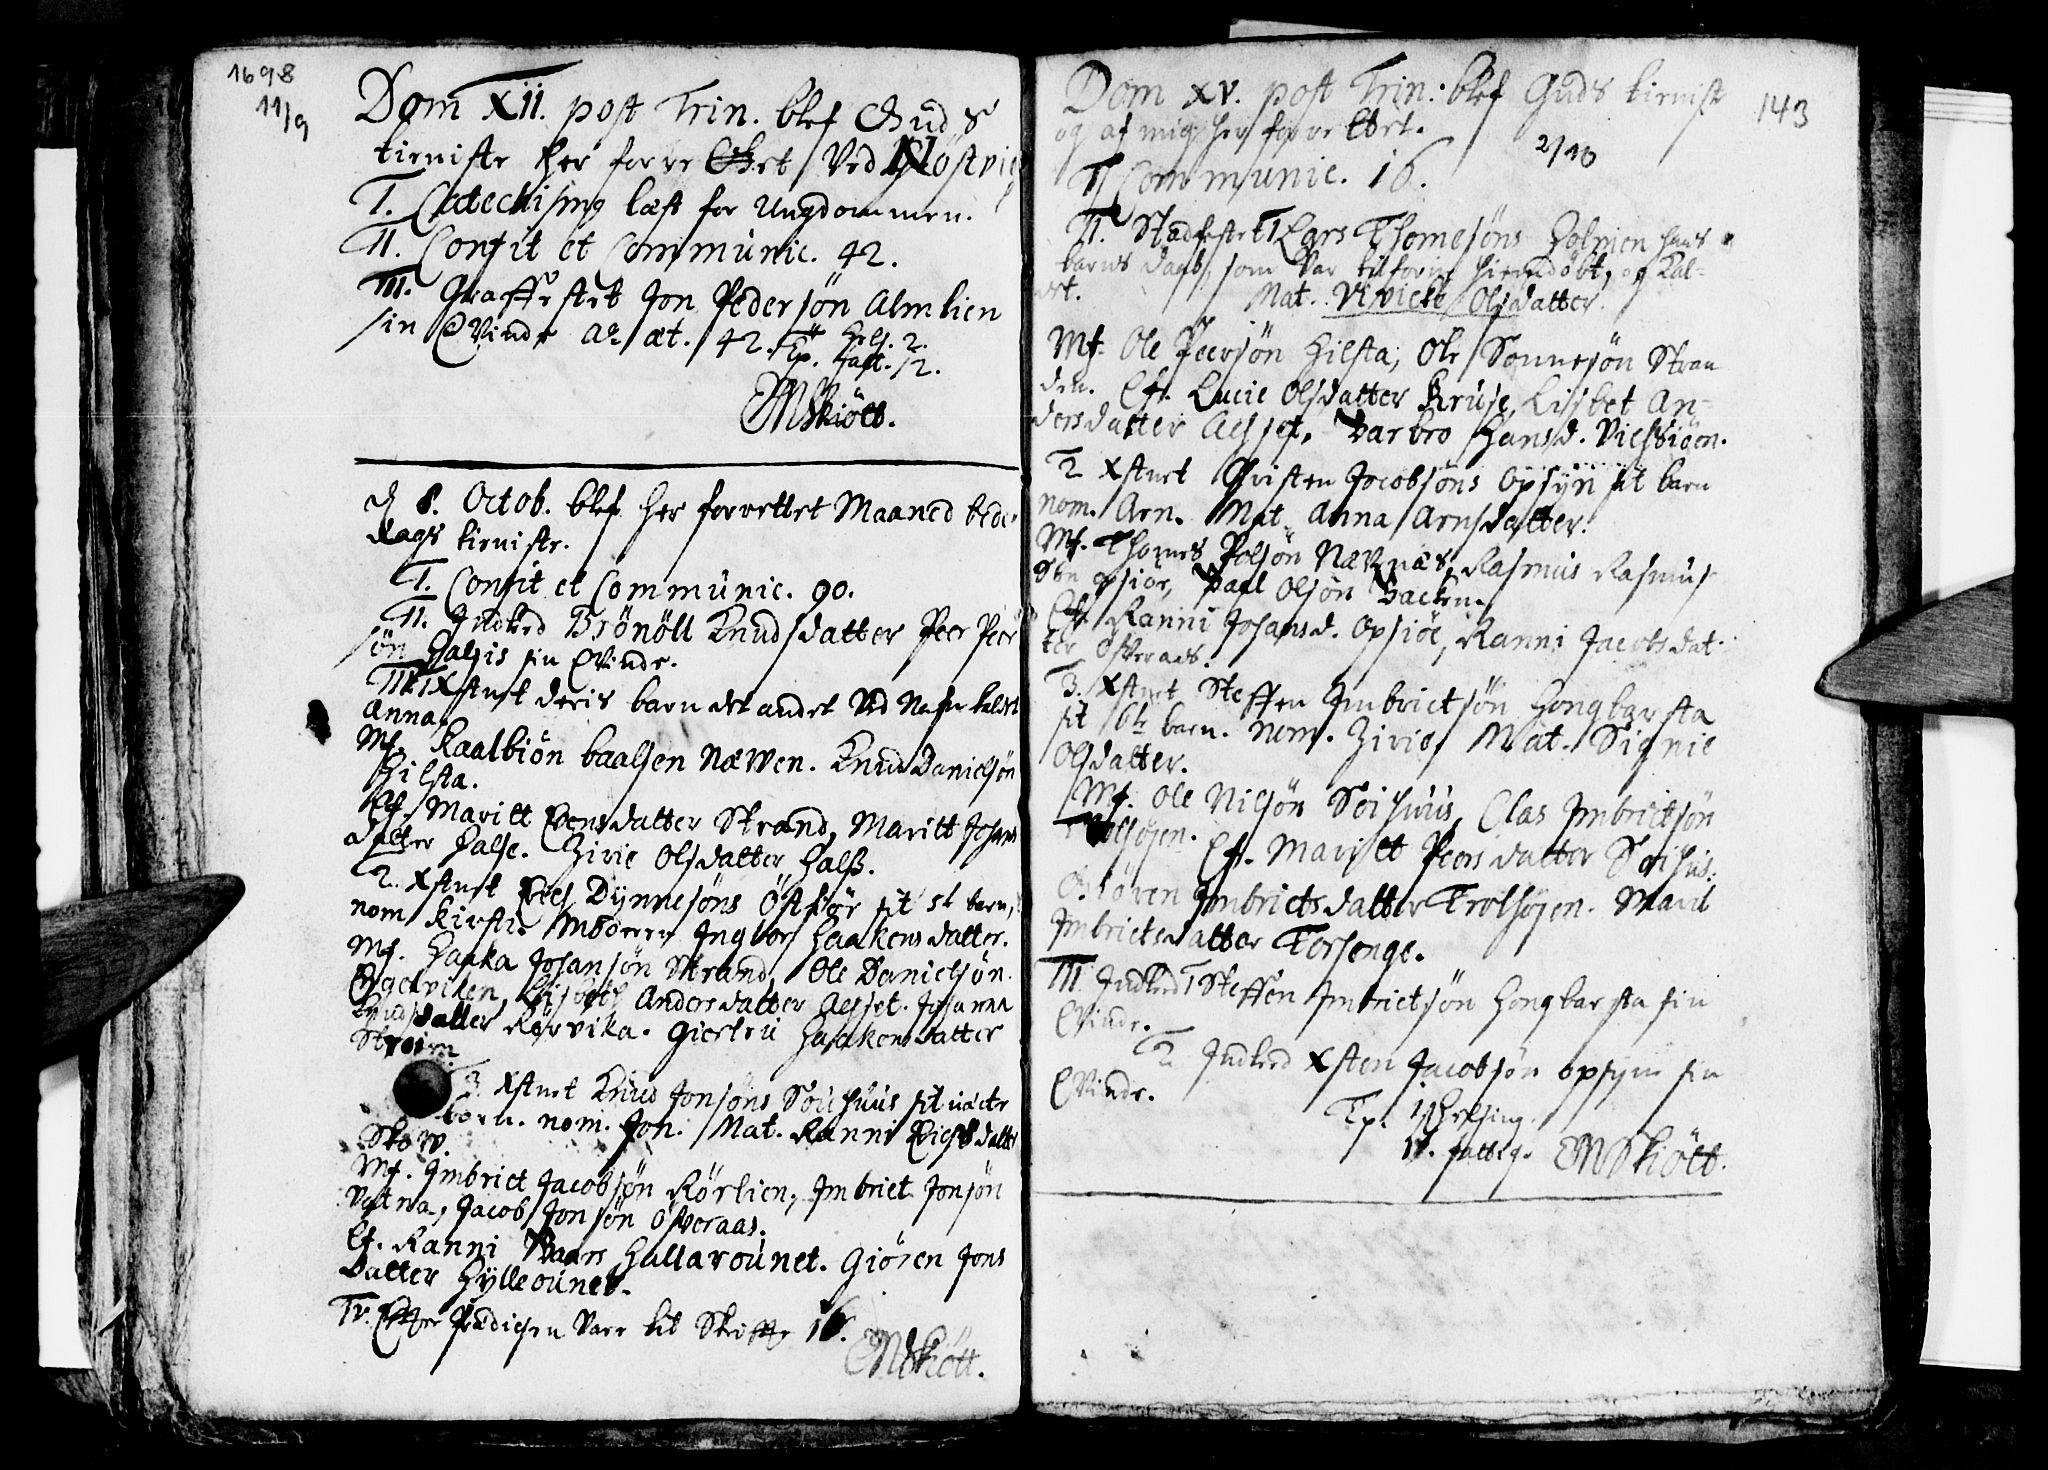 1698
11/9
Dom XII. post Trin. blef Guds
tieniste her forrettet Ved
I. Catechising læst for Ungdommen.
II. Confit et Communic. 42.
III. Graffestet Jon Pedersön Almlien
sin Qvinde Ao æt. 42. Tp. Hels. 2.
fatt. 2.
MSkiött.
d 8. Octob. blef her forrettet Maaned bede
dags tieniste.
I. Confit et Communic. 90.
II. Indled Brönöll Knudsdatter Peer Peer
sön Halsis sin Qvinde.
III. 1 Xstnet deris barn det andet Ved Nafn kaldet
Anna.
Mf. Kaalbiön baalsen Næwen. Knud Danielsön
Hilsta.
Ef. Maritt Evensdatter Strand, Maritt Johans
datter Halse. Zirie Olsdatter Halß.
2. Xstnet Peel Dynnesöns Östhör sit 5t barn,
nom Kirsti. Moderen Ingbor Haakensdatter.
Mf. Haaka Johansön Strand, Ole Danielsön
Engelviken, Lisbeth Andersdatter Aesset. Johanna
Knudsdatter Rörvika. Giertru Haakensdatter
Strom.
3. Xstnet Knud Jonsöns Söushuus sit ucte
barn. nom. Jon. Mat. Ranni Ericsdatter
Skow.
Mf. Imbrict Jacobsön Rörlien, Imbrict Jonsön
Vatna, Jacob Jonsön Osveraas.
Ef. Ranni Baars Hallarounet. Giören Jons
datter Hylleounet.
IV. Efter Prædicken Vare til Skrifte 16.
MSkiött.
143
Dom XV. post Trin: blef Guds tienist
og af mig her forrettet.
2/10
I Communic. 16.
II. Stadfestet 1 Lars Thomesöns Holmen hans
barns daab, som Var tilforne hiemdöbt, og Kal-
det. Mat. Vivicke Olsdatter.
Mf. Ole Peersön Hilsta, Ole Sonnesön Stran
den. Ef. Lucie Olsdatter Kruse, Lisbet An-
dersdatter Aesset, Barbro Hansd.
2 Xstnet Christen Jacobsöns Opsyn sit barn
nom. Arn. Mat. Anna Arnsdatter.
Mf. Thomes Polsön Nævnæs, Rasmus Rasmus
sön opsiöe, Paal Olsön Backen.
Ef. Ranni Johansd. Opsiöe, Ranni Jacobsdat-
ter Osveraas.
3. Xstnet Steffen Imbrictsön Hongbarsta
sit 6te barn. Nom. Zirie, Mat. Signie
Olsdatter.
Mf. Ole Nilsön Söishuus, Clas Imbrictsön
Trolsöjen. Ef. Maritt Peersdatter Soishus.
Giören Imbrictsdatter Trolsöjen. Marit
Imbrictsdatter Torsenge.
III. Indled 1 Steffen Imbrictsön Hongbarsta sin
Qvinde.
2 Indled Xsten Jacobsön opsyn sin
Qvinde.
Tp. 1 Helsing.
11. fattig. MSkiött.